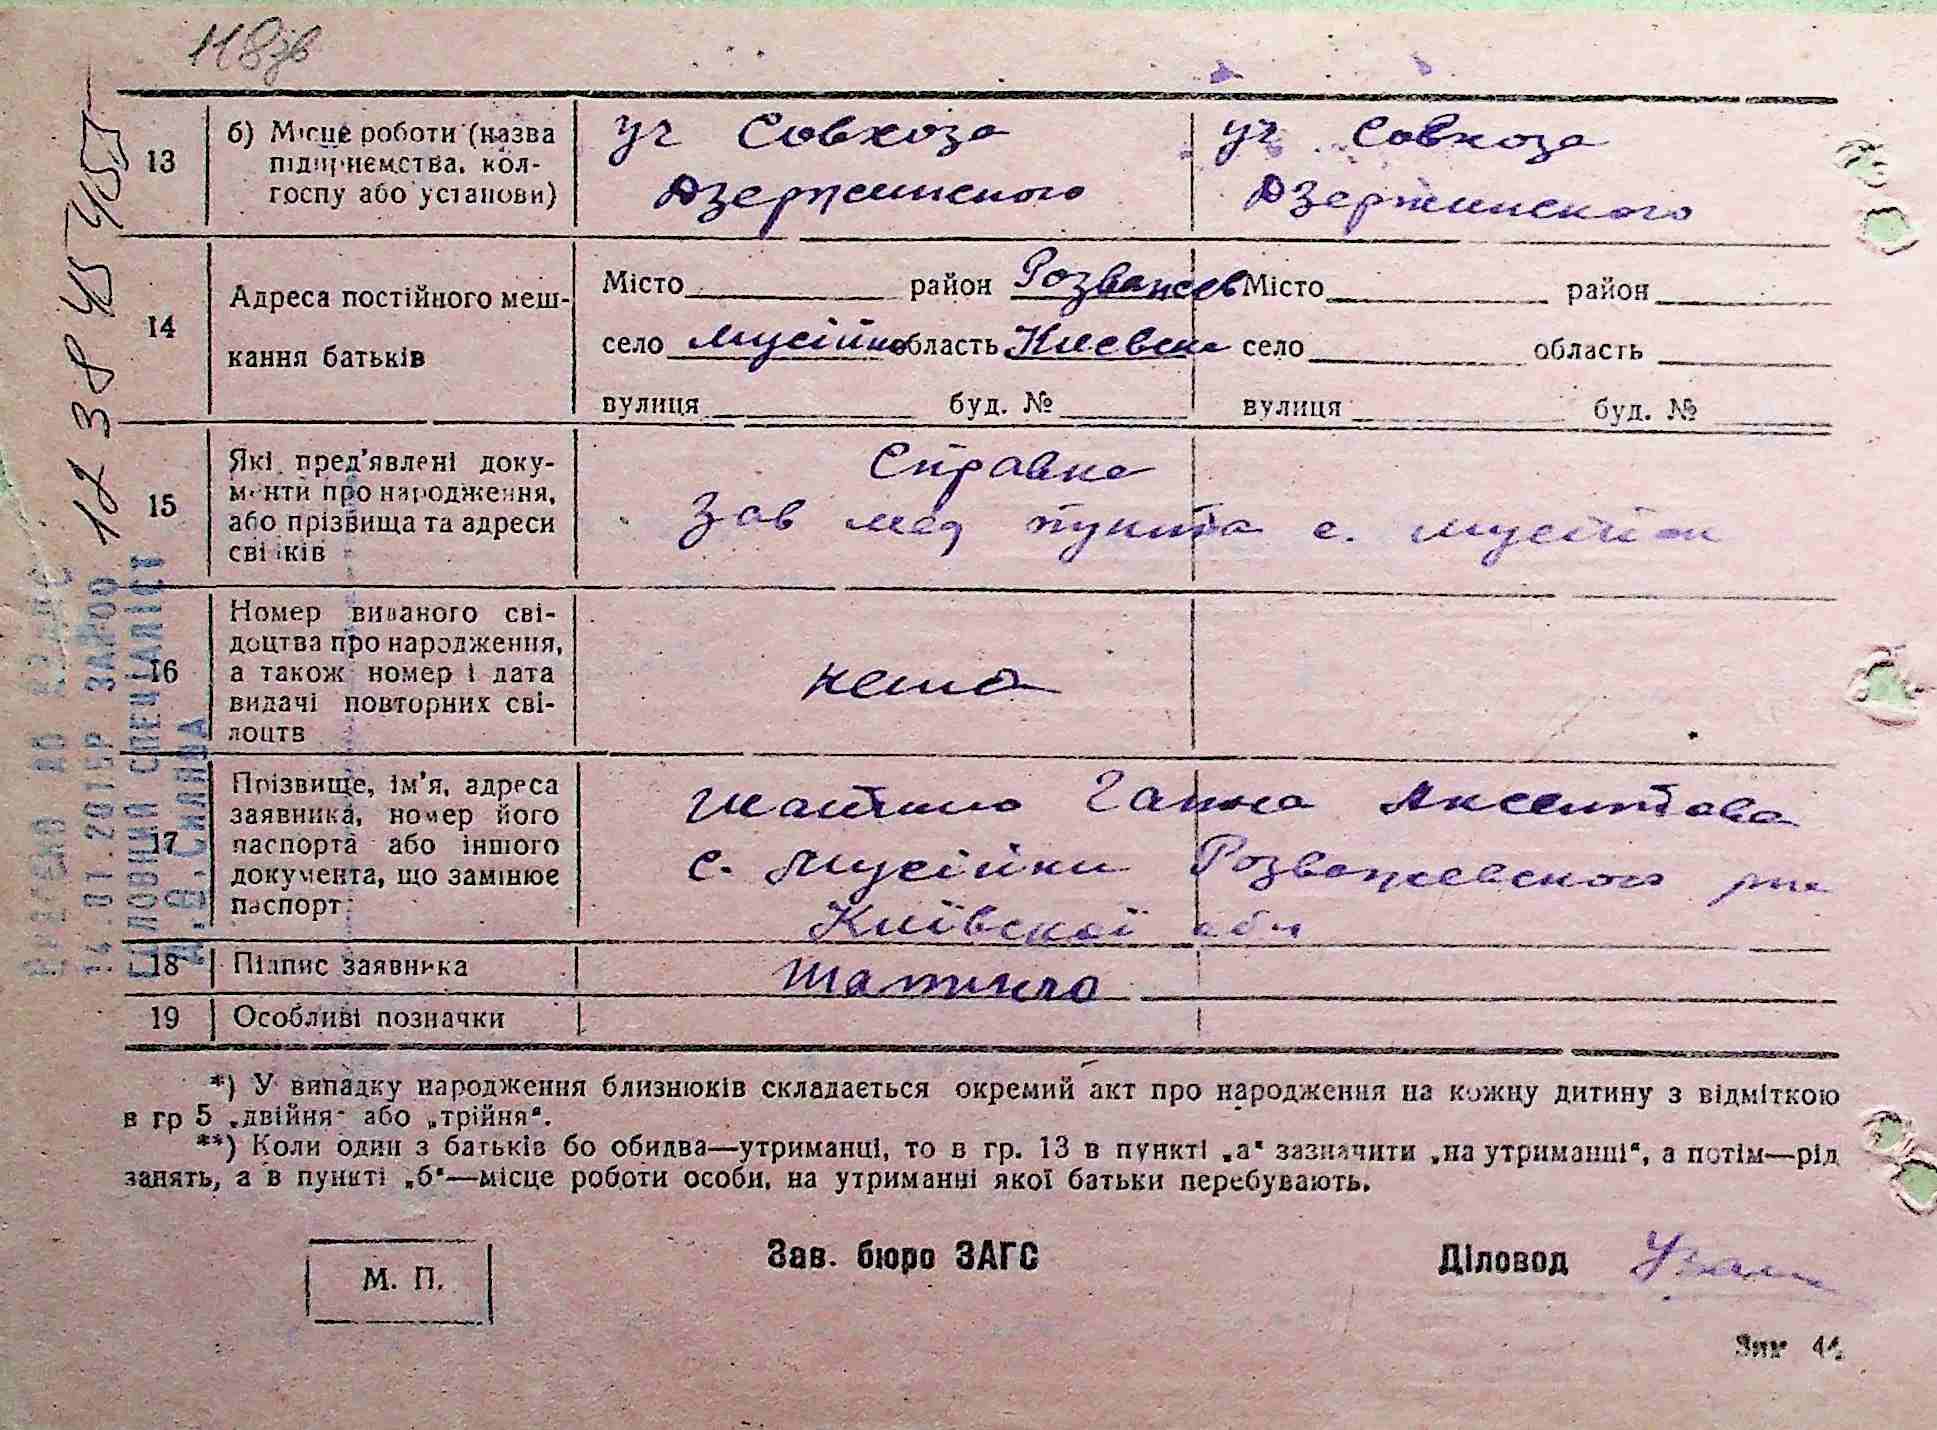 118зв
13 б) Місце роботи (назва підприємства, колгоспу або установи) уч Совхоза Дзержинского уч Совхоза Дзержинского
14 Адреса постійного мешкання батьків
Місто район Розважев Місто район
село Мусійки область Киевска село область
вулиця буд. № вулиця буд. №
15 Які пред'явлені документи про народження, або прізвища та адреси свідків
Справка
Зав мед пункта с. Мусійки
16 Номер виданого свідоцтва про народження, а також номер і дата видачі повторних свідоцтв
нема
17 Прізвище, ім'я, адреса заявника, номер його паспорта або іншого документа, що замінює паспорт
Шатило Ганна Аксентовна
с. Мусійки Розважевского рна
Київскої обл
18 Підпис заявника Шатило
19 Особливі позначки
*) У випадку народження близнюків складається окремий акт про народження на кожну дитину з відміткою
в гр 5 „двійня" або „трійня".
**) Коли один з батьків бо обидва—утриманці, то в гр. 13 в пункті „а" зазначити „на утриманні", а потім—рід
занять, а в пункті „б"—місце роботи особи, на утриманні якої батьки перебувають.
М. П. Зав. бюро ЗАГС Діловод
Зик 44
14.01.2015Р
ГОЛОВНИЙ СПЕЦІАЛІСТ